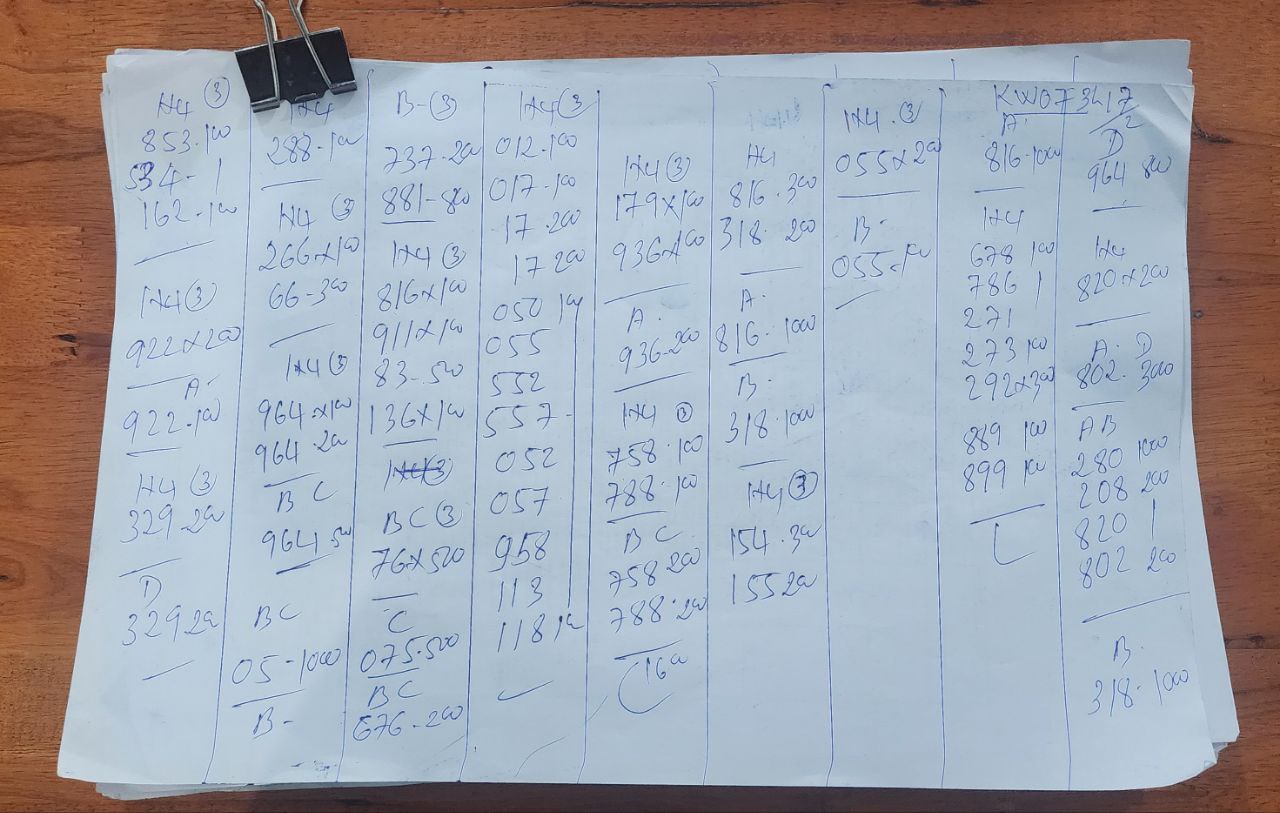 H4 (3)
853.100
534-1
162.100
H4 (3)
922x200
A.
922.100
H4 (3)
329 200
D
329 200
H4
288-100
H4 (3)
266x100
66-300
H4 (3)
964x100
964.200
BC
964 500
BC
05-1000
B-
B-(3)
737-200
881-800
H4 (3)
816x100
911x100
83-500
136x100
H4 (3)
BC (3)
76x500
C
075.500
BC
676-200
H4 (3)
012.100
017-100
17.200
17 200
050 100
055
552
557-
052
057
958
113
118 100
H4 (3)
179x100
936x100
A.
936-200
H4 (3)
758.100
788.100
BC
758 200
788.200
1600
H4
816.300
318.200
A.
816.1000
B.
318.1000
H4 (3)
154.300
155 200
H4.(3)
055x200
B.
055.100
KW073417
A.
816-1000
H4
678 100
786 1
271
273 100
292x300
889 100
899 100
D
964 800
H4
820x200
A. D
802. 3000
AB
280 1000
208 200
820 1
802 200
B.
318-1000